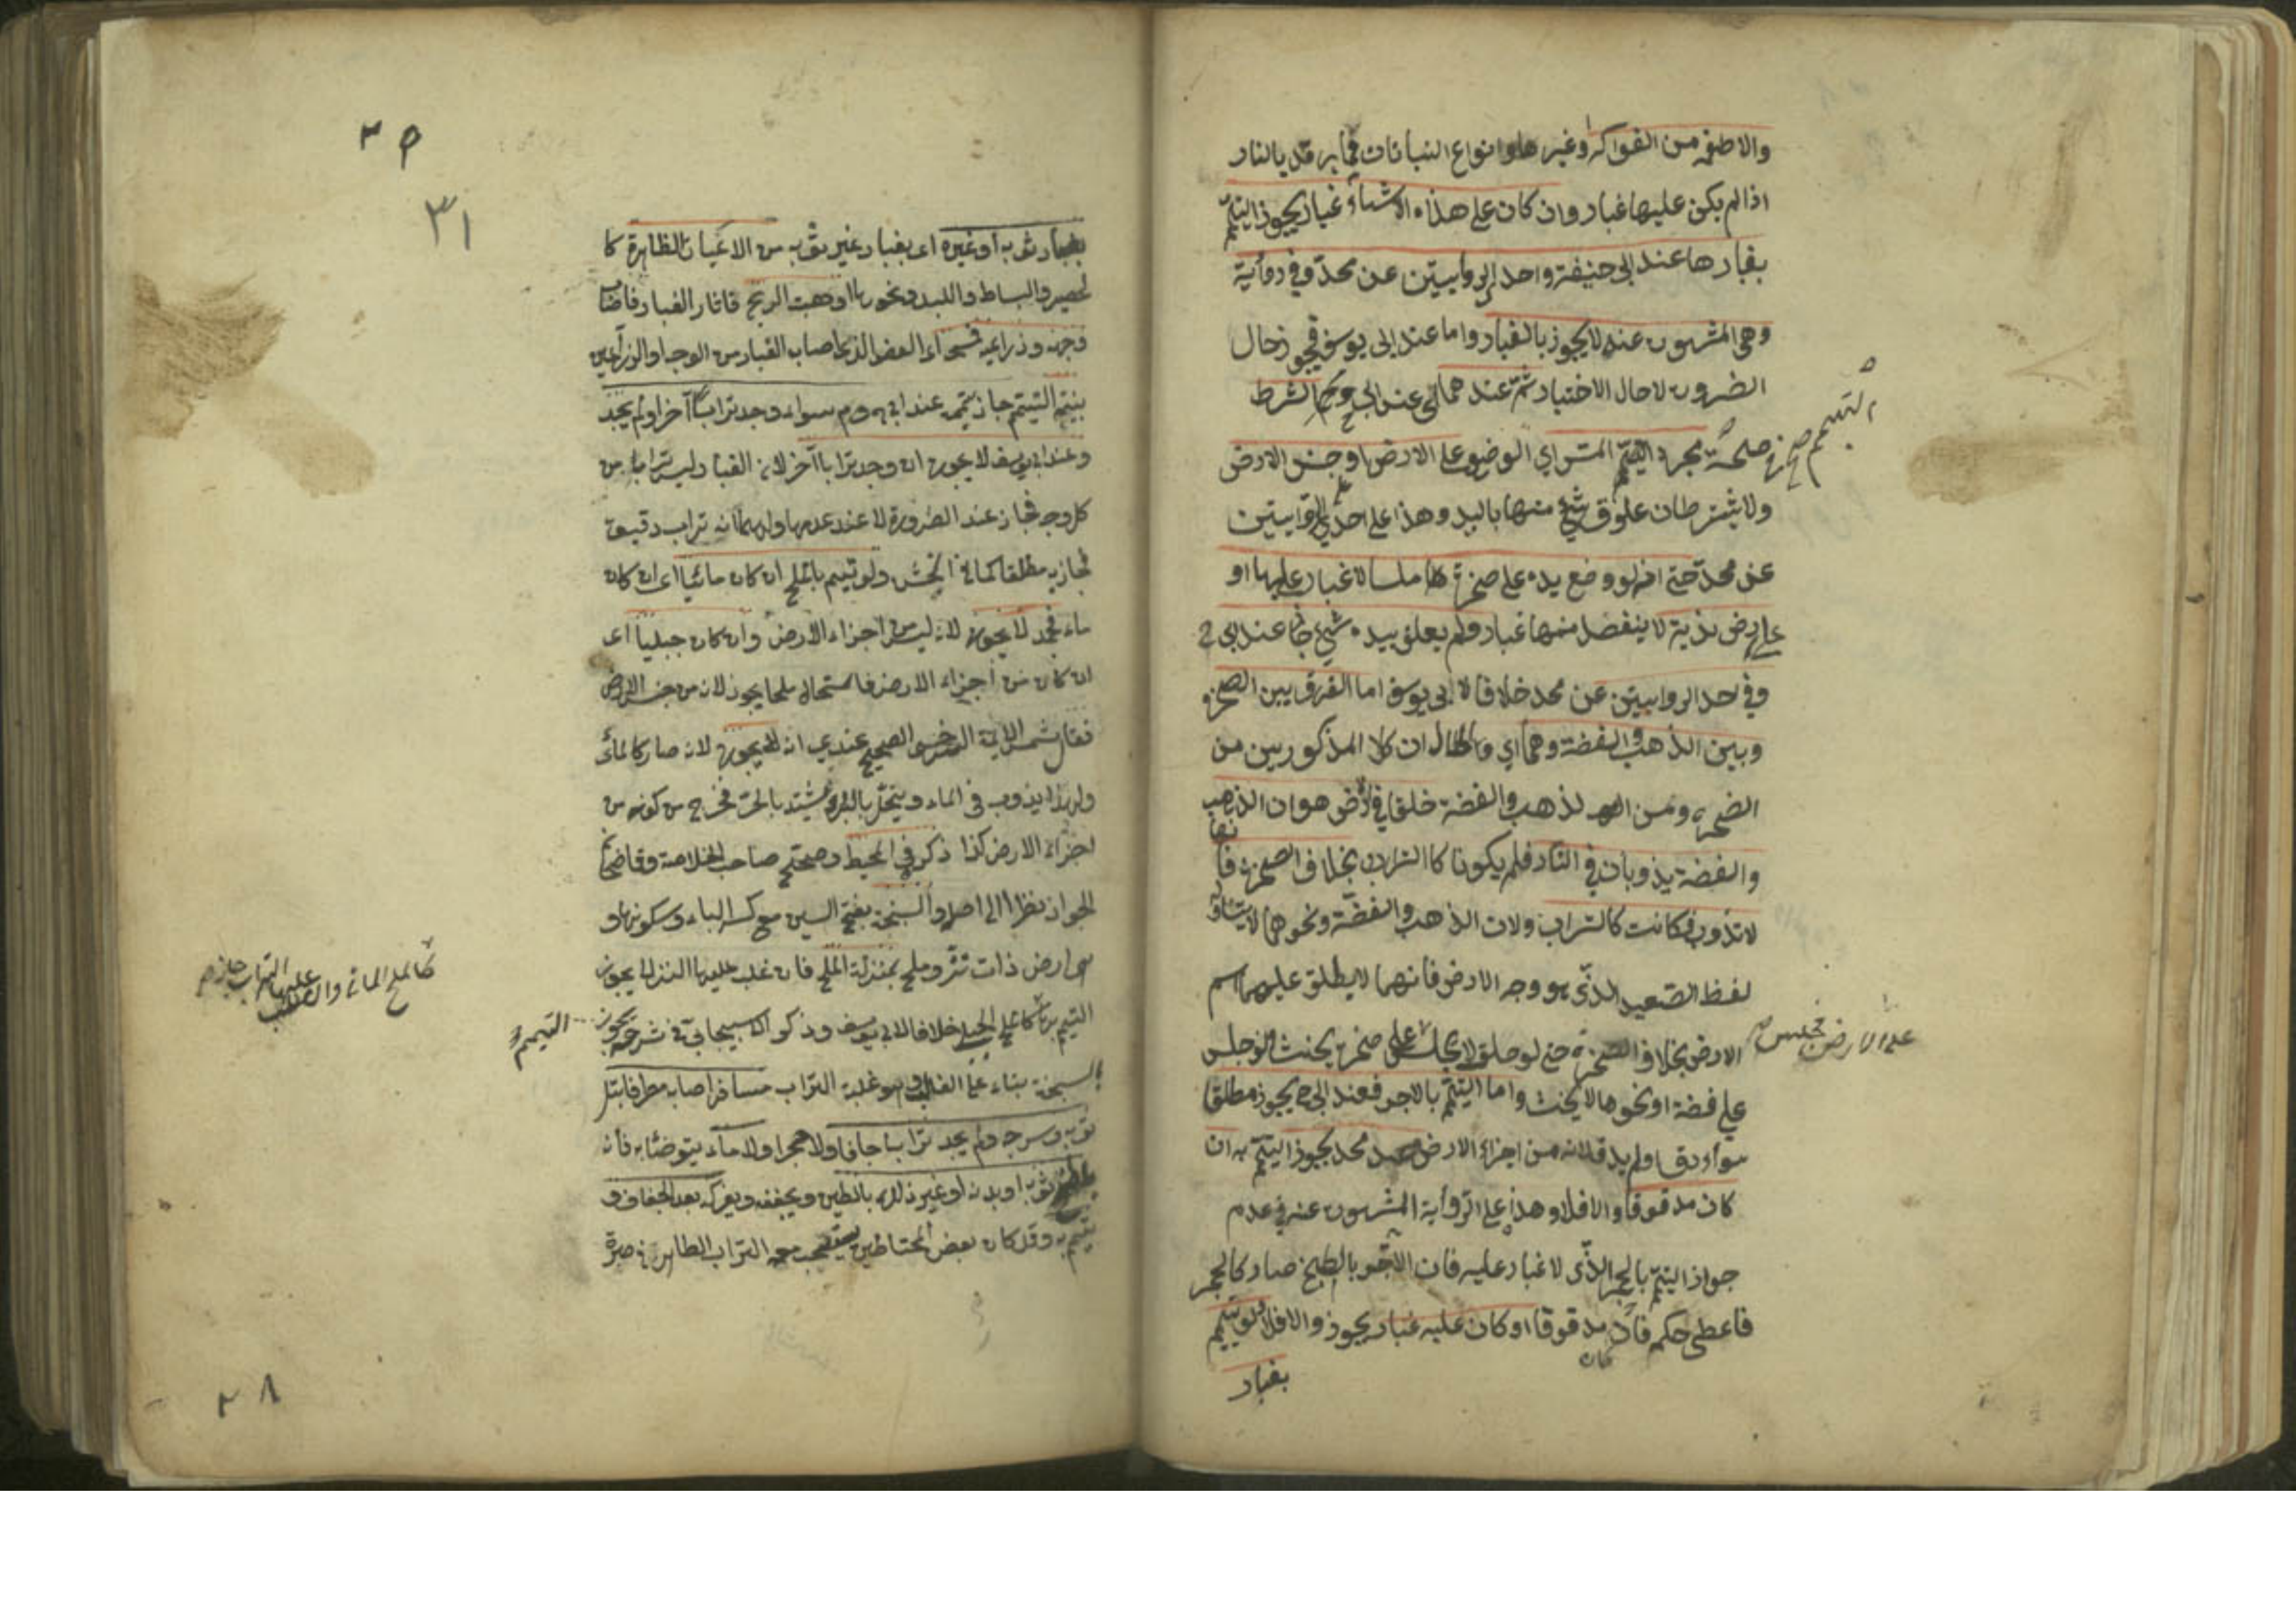 والاطعمة من الفواكه وغيرها وانواع النباتات مما يرمد بالنار
اذا لم يكن عليها غبار وان كان على هذه الاشياء غبار يجوز التيمم
بغبارها عند ابى حنيفة واحد الروايتين عن محمد وفي رواية
وهي المشهورة عنه لا يجوز بالغبار واما عند ابى يوسف فيجوز حال
الضرورة لا حال الاختيار ثم عندهما اي عند ابى ح وم الشرط
التيمم صح
في صحة مجرد المس اي الوضع على الارض او جنس الارض
ولا يشترطان علوق شيء منها باليد وهذا على احدى الروايتين
عن محمد حتى انه لو وضع يده على صخرة ملسا لا غبار عليها او
على ارض ندية لا ينفصل منها غبار ولم يعلق بيده شيء جاز عند ابى ح
وفي احد الروايتين عن محمد خلافا لابى يوسف اما الفرق بين الصخرة
وبين الذهب والفضة وهما اي والحال ان كلا المذكورين من
الصخرة ومن الذهب والفضة خلقا في الارض هو ان الذهب
والفضة يذوبان في النار فلم يكونا كالتراب بخلاف الصخرة فانها
لا تذوب فكانت كالتراب ولان الذهب والفضة ونحوهما لا يتناوله
لفظ الصعيد الذى هو وجه الارض فانهما لا يطلق عليهما اسم
الارض بخلاف الصخرة حتى لو حلف لا يجلس على صخرة يحنث ولو جلس
على الارض فجلس
على فضة او نحوها لا يحنث واما التيمم بالاجر فعند ابى ح يجوز مطلقا
سواء دق او لم يدق لانه من اجزاء الارض وعند محمد يجوز التيمم به ان
كان مدقوقا والا فلا وهذا على الرواية المشهورة عنه في عدم
جواز التيمم بالحجر الذى لا غبار عليه فان الاجر بالطبخ صار كالحجر
فاعطى حكمه فان كان مدقوقا او كان عليه غبار يجوز والا فلا ولو تيمم
بغبار
٣٥
٣١
بغبار ثوبه او غيره اى بغبار غير ثوبه من الاعيان الطاهرة كا
لحصير والبساط واللبد ونحوها او هبت الريح فاثار الغبار فاصاب
وجهه وذراعيه فمسح اى العضو الذى اصاب الغبار من الوجه او الذراعين
بنية التيمم جاز تيممه عند ابى ح وم سواء وجد ترابا آخر او لم يجد
وعند ابى يوسف لا يجوز ان وجد ترابا آخر لان الغبار ليس ترابا من
كل وجه فجاز عند الضرورة لا عند عدمها ولهما انه تراب دقيق
فجاز به مطلقا كما في الخشن ولو تيمم بالملح ان كان مائيا اى ان كان
ماء فجمد لا يجوز لانه ليس من اجزاء الارض وان كان جبليا اى
ان كان من اجزاء الارض فاستحال ملحا يجوز لانه من جنس الارض
فقال شمس الائمة السرخسى الصحيح عندي انه لا يجوز لانه صار كالمائى
ولهذا يذوب في الماء وينحل بالبرد ويشتد بالحر فخرج من كونه من
اجزاء الارض كذا ذكره في المحيط وصحح صاحب الخلاصة وقاضيخان
الجواز نظرا الى اصله والسبخة بفتح السين مع كسر الباء وسكونها و
هى ارض ذات نز وملح بمنزلة الملح فان غلب عليها النز لا يجوز
كالملح المائى وان غلب عليها التراب جاز صح
التيمم بها كما على الجبلى خلافا لابى يوسف وذكر الاسبيجابى في شرحه يجوز التيمم
بالسبخة بناء على الغالب وهو غلبة التراب مسافر اصابه مطر فابتل
ثوبه وسرجه ولم يجد ترابا جافا ولا حجرا ولا ماء يتوضأ به فانه
يلطخ ثوبه او بدنه او غير ذلك بالطين ويجففه ويفركه بعد الجفاف و
يتيمم به وقد كان بعض المحتاطين يستصحب معه التراب الطاهر في صرة
٢٨